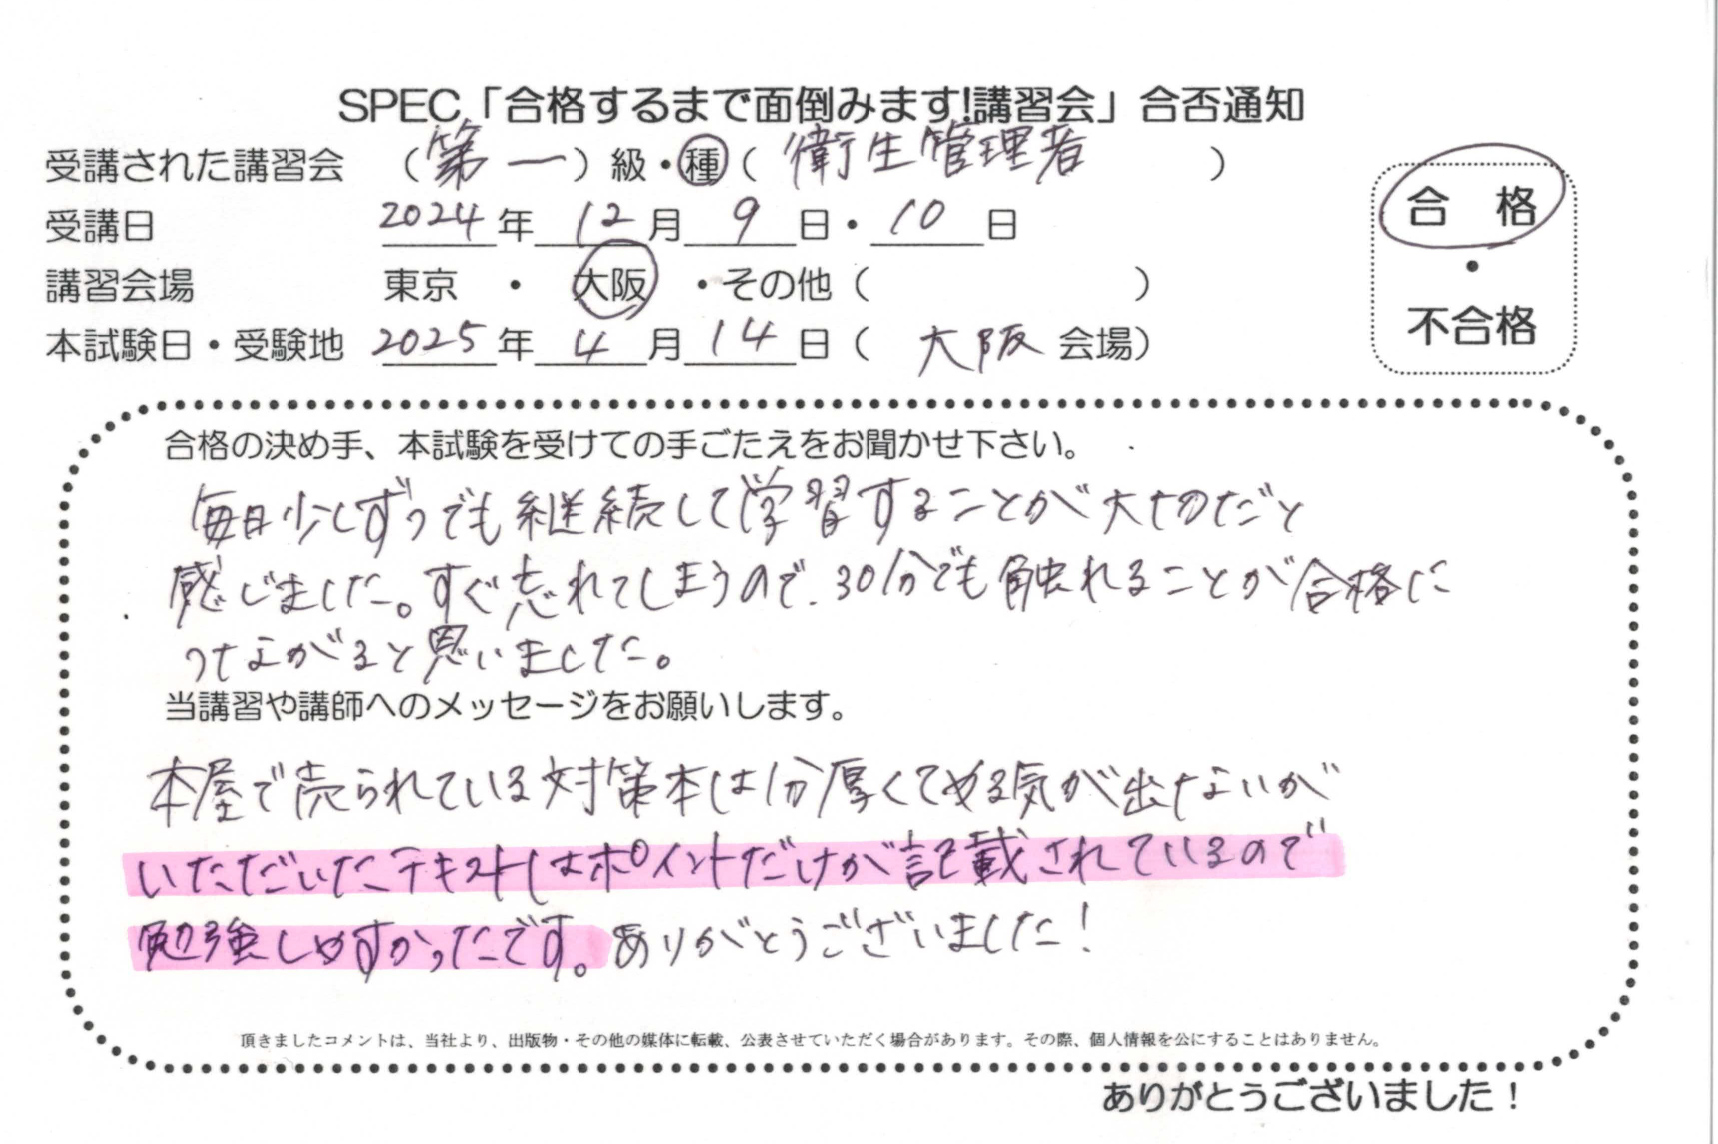 SPEC「合格するまで面倒みます!講習会」合否通知
受講された講習会 （第一）級・種（衛生管理者）
受講日 2024年12月9日・10日
講習会場 東京 ・ 大阪 ・その他（ ）
本試験日・受験地 2025年4月14日（大阪会場）
合格
・
不合格
合格の決め手、本試験を受けての手ごたえをお聞かせ下さい。
毎日少しずつでも継続して学習することが大切だと
感じました。すぐ忘れてしまうので、30分でも触れることが合格に
つながると思いました。
当講習や講師へのメッセージをお願いします。
本屋で売られている対策本は分厚くてやる気が出ないが
いただいたテキストはポイントだけが記載されているので
勉強しやすかったです。ありがとうございました！
頂きましたコメントは、当社より、出版物・その他の媒体に転載、公表させていただく場合があります。その際、個人情報を公にすることはありません。
ありがとうございました！